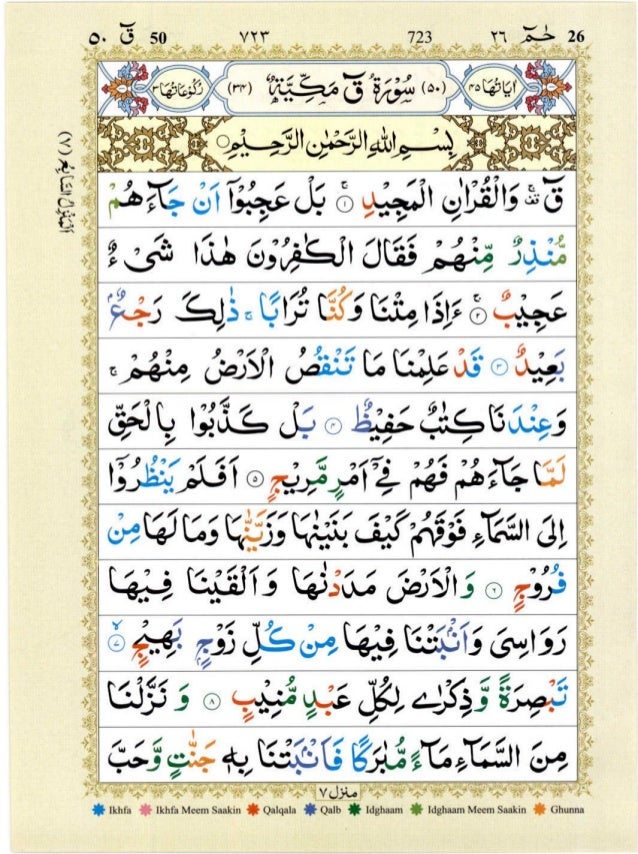 ٥٠ قٓ 50 ٧٢٣ 723 حٰمٓ ٢٦ 26
اٰيَاتُهَا ٤٥ (٥٠) سُوْرَةُ قٓ مَكِّيَّةٌ (٣٤) رُكُوْعَاتُهَا ٣
بِسْمِ اللّٰهِ الرَّحْمٰنِ الرَّحِيْمِ
اَلْمَنْزِلُ السَّابِعُ (٧)
قٓ ۚ وَالْقُرْاٰنِ الْمَجِيْدِ ۚ ١ بَلْ عَجِبُوْۤا اَنْ جَآءَهُمْ
مُّنْذِرٌ مِّنْهُمْ فَقَالَ الْكٰفِرُوْنَ هٰذَا شَیْءٌ
عَجِيْبٌ ۚ ٢ ءَاِذَا مِتْنَا وَكُنَّا تُرَابًا ۚ ذٰلِكَ رَجْعٌۢ
بَعِيْدٌ ٣ قَدْ عَلِمْنَا مَا تَنْقُصُ الْاَرْضُ مِنْهُمْ ۚ
وَعِنْدَنَا كِتٰبٌ حَفِيْظٌ ٤ بَلْ كَذَّبُوْا بِالْحَقِّ
لَمَّا جَآءَهُمْ فَهُمْ فِیْۤ اَمْرٍ مَّرِيْجٍ ٥ اَفَلَمْ يَنْظُرُوْۤا
اِلَى السَّمَآءِ فَوْقَهُمْ كَيْفَ بَنَيْنٰهَا وَزَيَّنّٰهَا وَمَا لَهَا مِنْ
فُرُوْجٍ ٦ وَالْاَرْضَ مَدَدْنٰهَا وَاَلْقَيْنَا فِيْهَا
رَوَاسِیَ وَاَنْۢبَتْنَا فِيْهَا مِنْ كُلِّ زَوْجٍۭ بَهِيْجٍ ۙ ٧
تَبْصِرَةً وَّذِكْرٰى لِكُلِّ عَبْدٍ مُّنِيْبٍ ٨ وَنَزَّلْنَا
مِنَ السَّمَآءِ مَآءً مُّبٰرَكًا فَاَنْۢبَتْنَا بِهٖ جَنّٰتٍ وَّحَبَّ
منزل ٧
Ikhfa Ikhfa Meem Saakin Qalqala Qalb Idghaam Idghaam Meem Saakin Ghunna